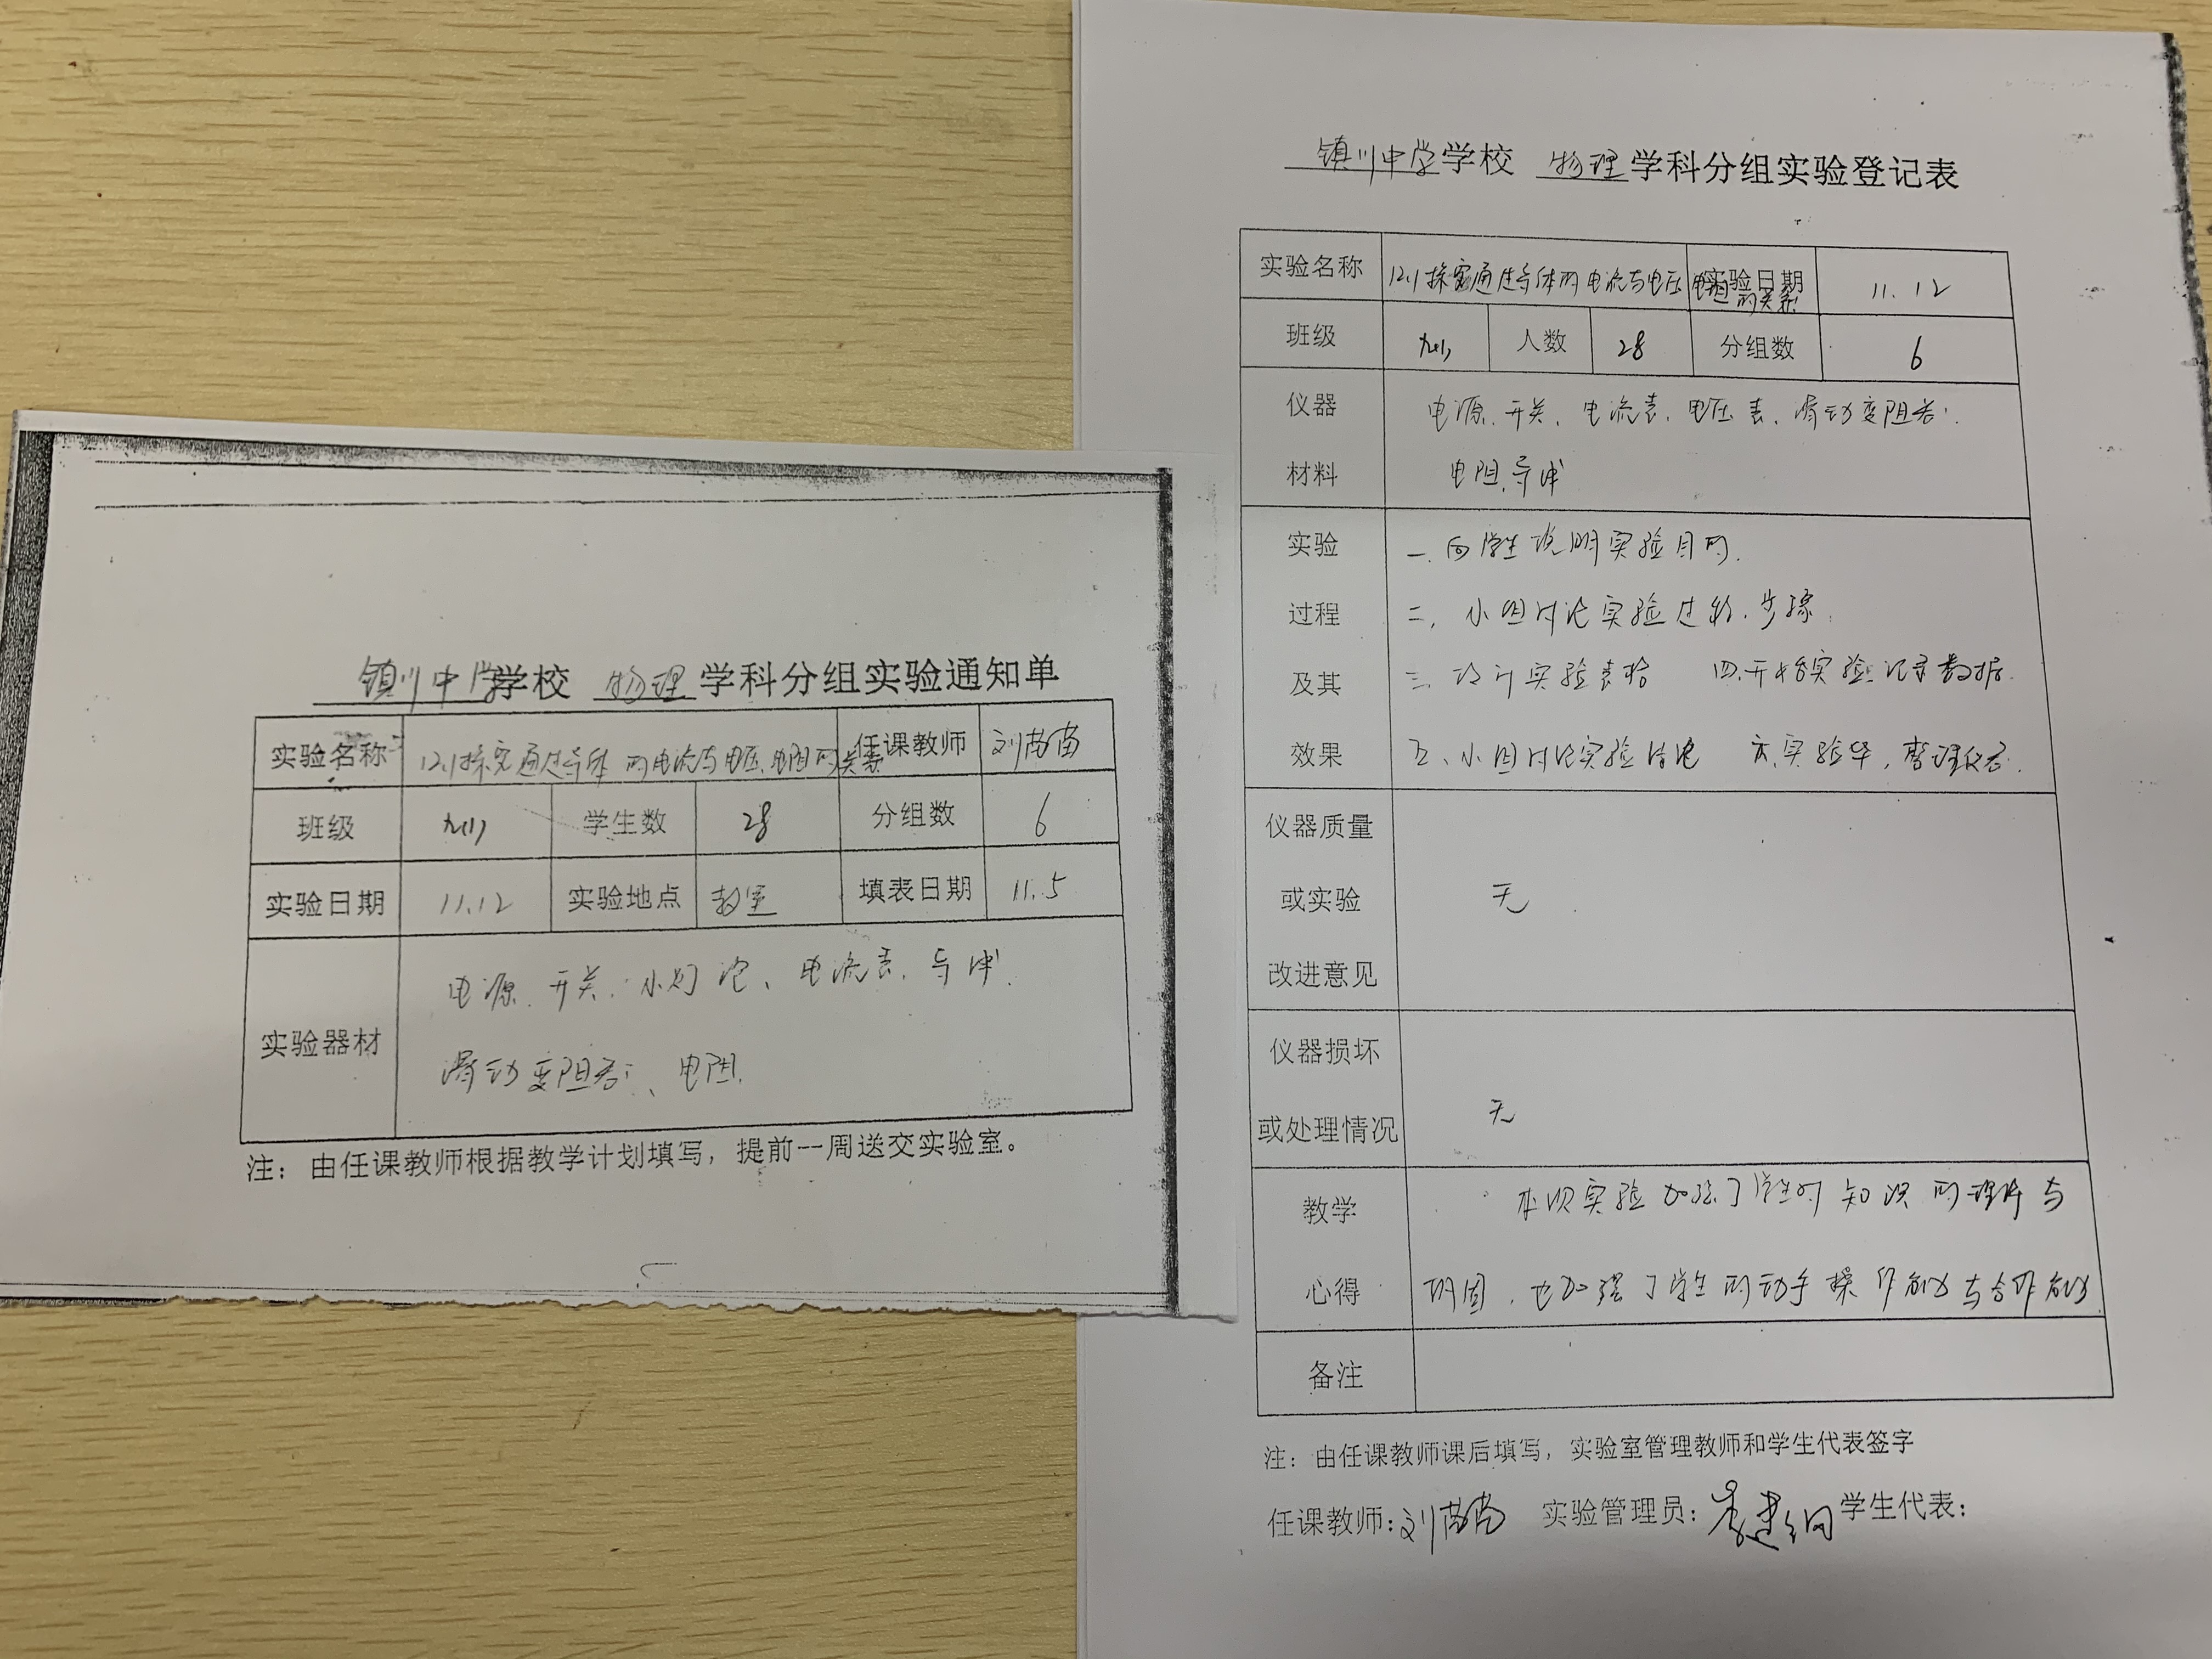 镇川中学学校 物理学科分组实验通知单
实验名称 12.1探究通过导体的电流与电压、电阻的关系 任课教师 刘苗苗
班级 九(1) 学生数 28 分组数 6
实验日期 11.12 实验地点 教室 填表日期 11.5
实验器材 电源、开关、小灯泡、电流表、导线、
滑动变阻器、电阻.
注：由任课教师根据教学计划填写，提前一周送交实验室。
镇川中学学校 物理学科分组实验登记表
实验名称 12.1探究通过导体的电流与电压 电阻的关系 实验日期 11.12
班级 九(1) 人数 28 分组数 6
仪器 电源、开关、电流表、电压表、滑动变阻器.
材料 电阻、导线
实验 一、向学生说明实验目的.
过程 二、小组讨论实验过程、步骤.
及其 三、设计实验表格 四、开始实验记录数据.
效果 五、小组讨论实验结论 六、实验毕，整理仪器.
仪器质量
或实验 无
改进意见
仪器损坏
或处理情况 无
教学 本次实验加强了学生对知识的理解与
心得 巩固，也加强了学生的动手操作能力与合作能力
备注
注：由任课教师课后填写，实验室管理教师和学生代表签字
任课教师：刘苗苗 实验管理员： 学生代表：